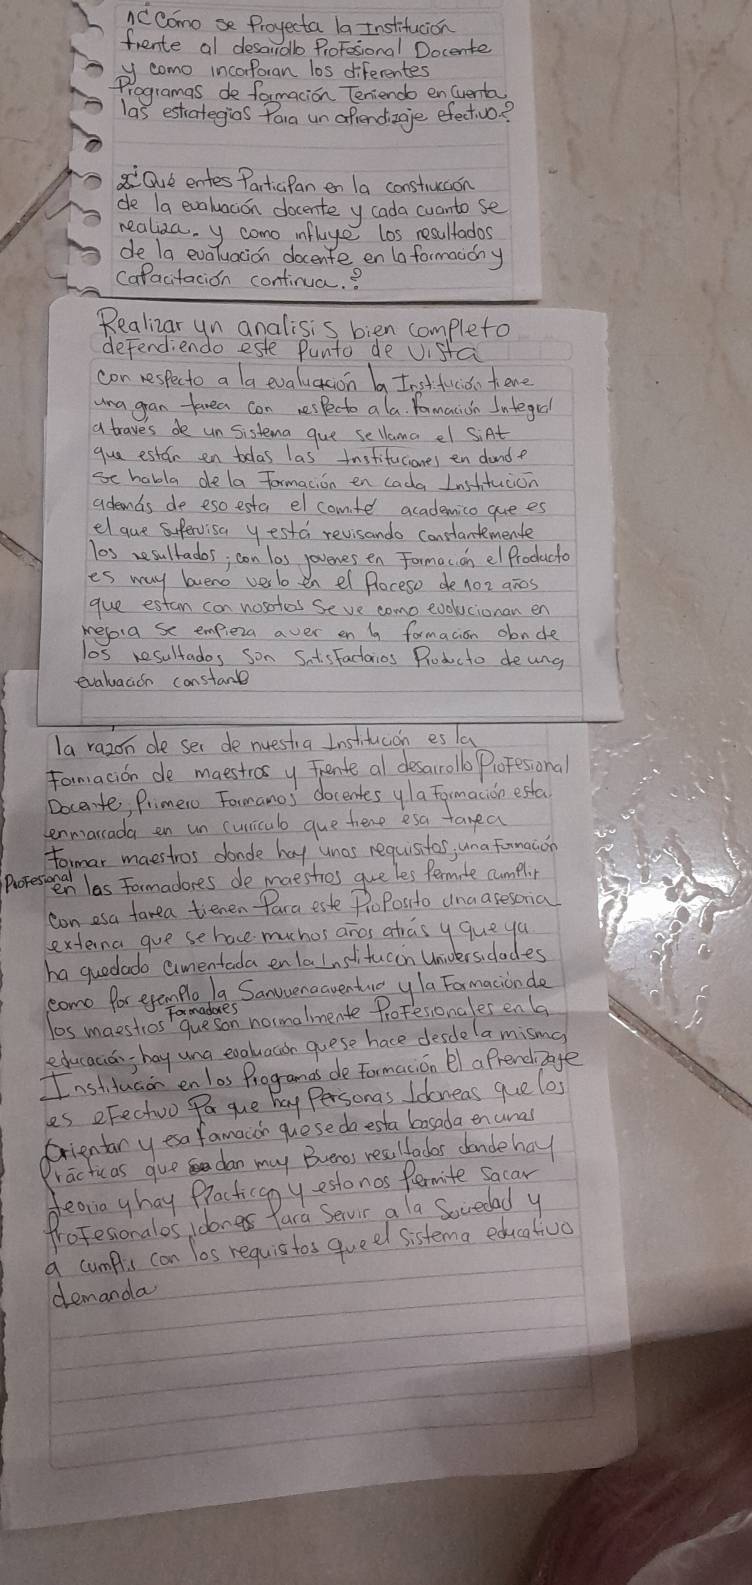 1¿Cómo se Proyecta la Institución
frente al desarrollo Profesional Docente
y como incorporan los diferentes
Programas de formación Teniendo en Cuenta
las estrategias Para un aprendizaje efectivo?
2¿Qué entes Participan en la construcción
de la evaluación docente y cada cuanto se
realiza. y como influye los resultados
de la evaluación docente en la formación y
capacitación continua.?
Realizar un analisis bien completo
defendiendo este Punto de Vista
con respecto a la evaluación la Institución tiene
una gran tarea con respecto a la. Formación Integral
a traves de un Sistema que se llama el SiAt
que están en todas las Instituciones en donde
se habla de la Formación en cada Institución
además de eso esta el comité academico que es
el que Supervisa y está revisando constantemente
los resultados; con los jovenes en Formación el Producto
es muy bueno verlo en el Proceso de 1 o 2 años
que estan con nosotros Se ve como evolucionan en
mejoria se empieza a ver en la formacion donde
los resultados son Satisfactorios Producto de una
evaluación constante
la razón de ser de nuestra Institución es la
Formación de maestros y Frente al desarrollo Profesional
Docente, Primero Formamos docentes y la Formación esta
enmarcada en un curriculo que tiene esa tarea
formar maestros donde hay unos requisitos; una Formación
Profesional
en las Formadores de maestros que les Permite cumplir
con esa tarea tienen Para este Proposito una asesoria
externa que se hace muchos anos atrás y que ya
ha quedado cimentada en la Institucion Universidades
como Por esemplo la Sanvuenaaventura y la Formación de
Formadores
los maestros que son normalmente Profesionales en la
educación; hay una evaluación que se hace desde la misma
Institución en los Programas de Formación El aprendizage
es efectivo Por que hay Personas Idoneas que los
Orientan y esa formación que se da esta basada en unas
Prácticas que dan muy Buenos resultados donde hay
teoria y hay Practica y esto nos Permite Sacar
Profesionales Idones Para Servir a la Sociedad y
a cumplir con los requistos que el Sistema educativo
demanda